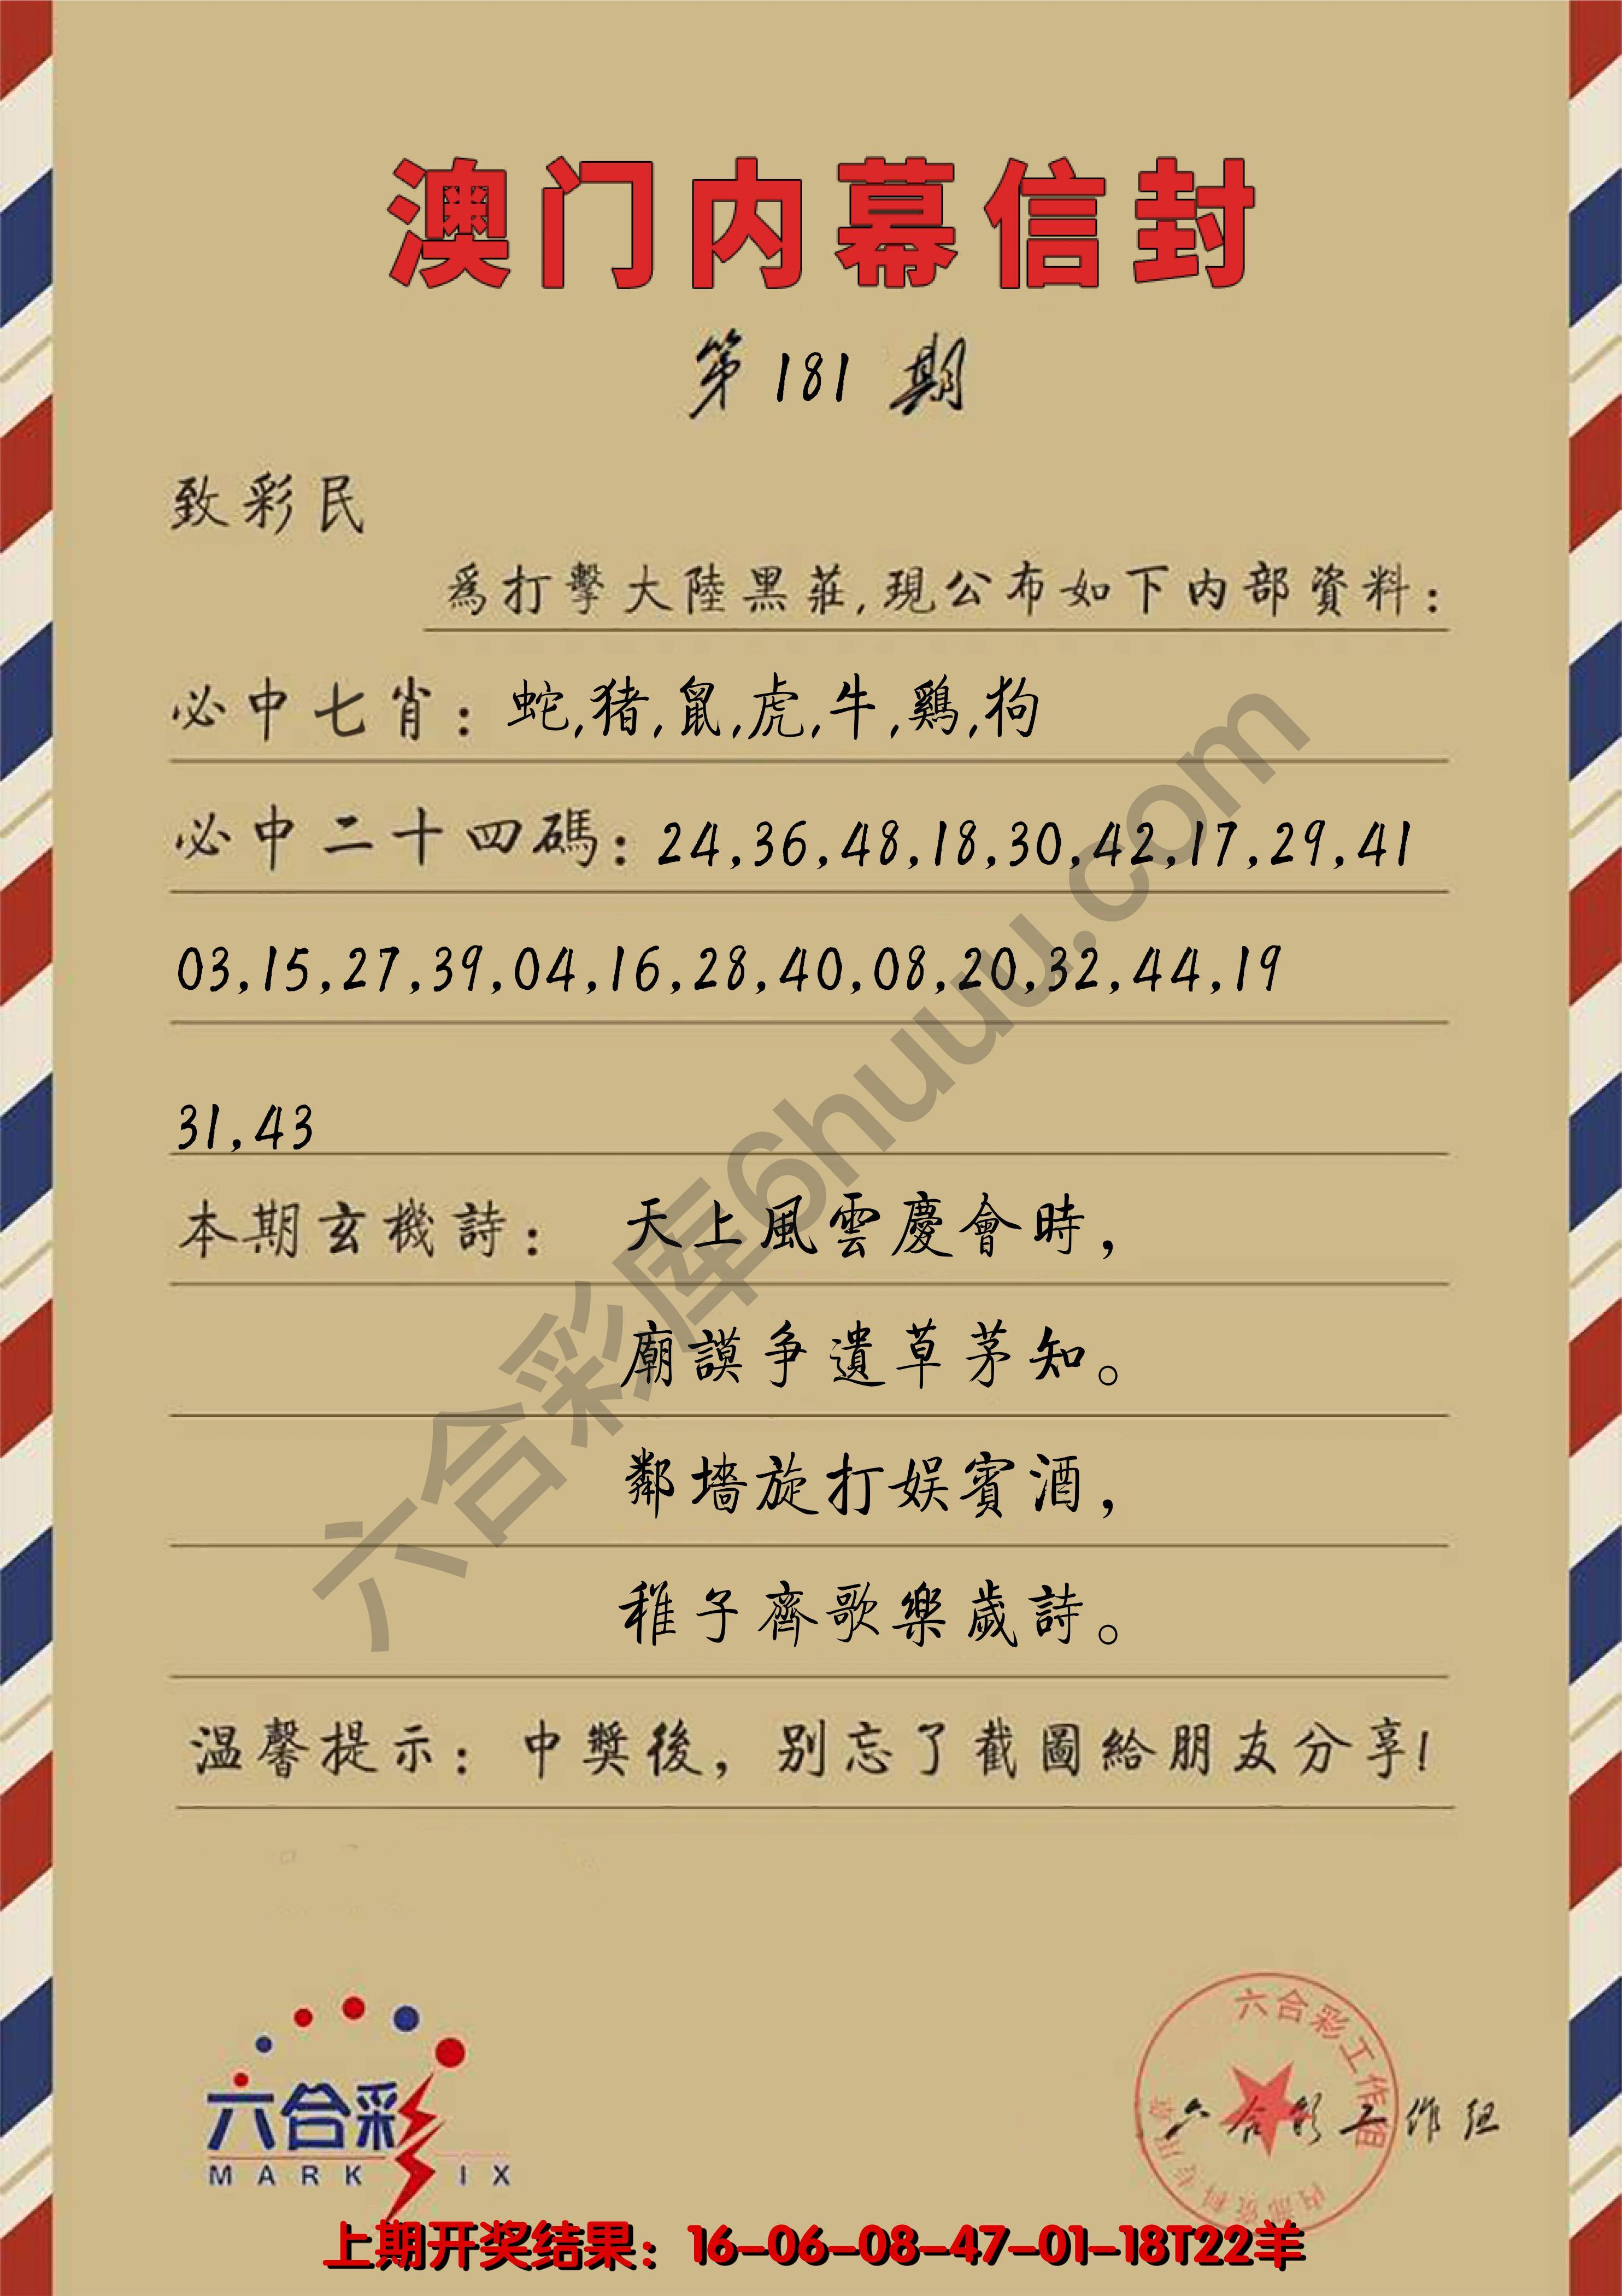 澳门内幕信封
第181期
致彩民
爲打擊大陸黑莊,現公布如下内部資料:
必中七肖: 蛇,猪,鼠,虎,牛,鷄,狗
必中二十四碼: 24,36,48,18,30,42,17,29,41
03,15,27,39,04,16,28,40,08,20,32,44,19
31,43
本期玄機詩: 天上風雲慶會時,
廟謨争遺草茅知。
鄰墻旋打娱賓酒,
稚子齊歌樂歲詩。
温馨提示: 中獎後, 别忘了截圖給朋友分享!
六合彩库6huuu.com
六合彩
MARK IX
六合彩工作组
内部资料专用章
六合彩工作组
上期开奖结果: 16-06-08-47-01-18T22羊